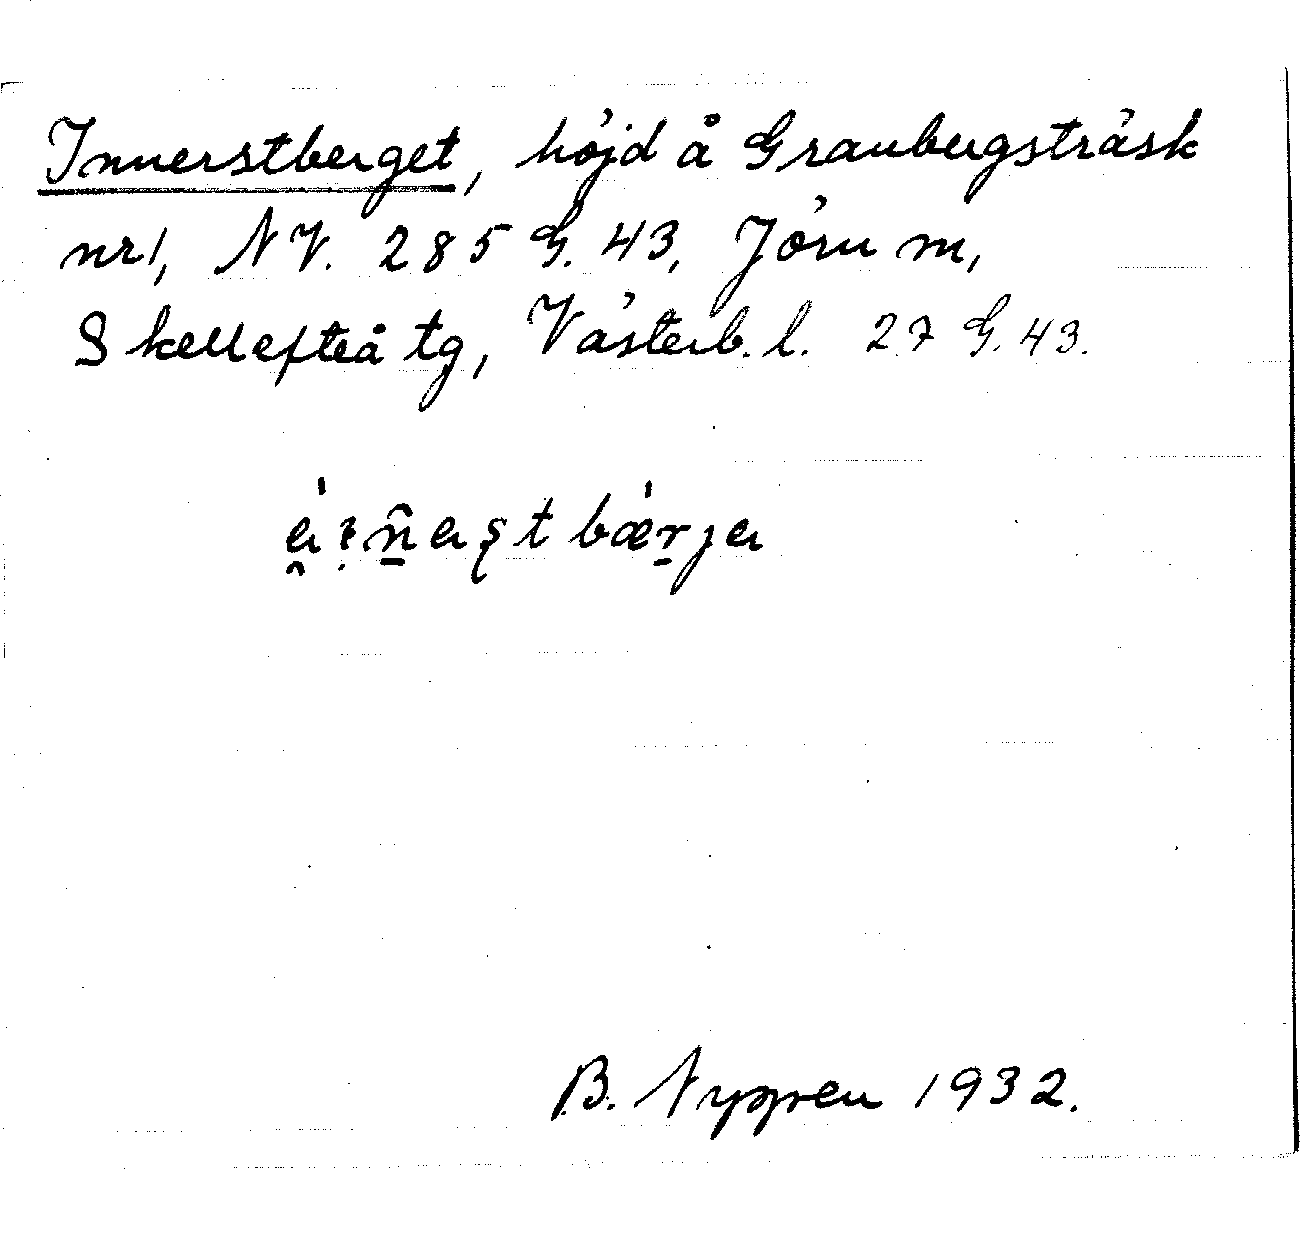 Innerstberget, höjd å Granbergsträsk
nr 1, NV. 285 G. 43, Jörn m,
Skellefteå tg, Västerb. l. 27 G. 43.
B. Nyggren 1932.